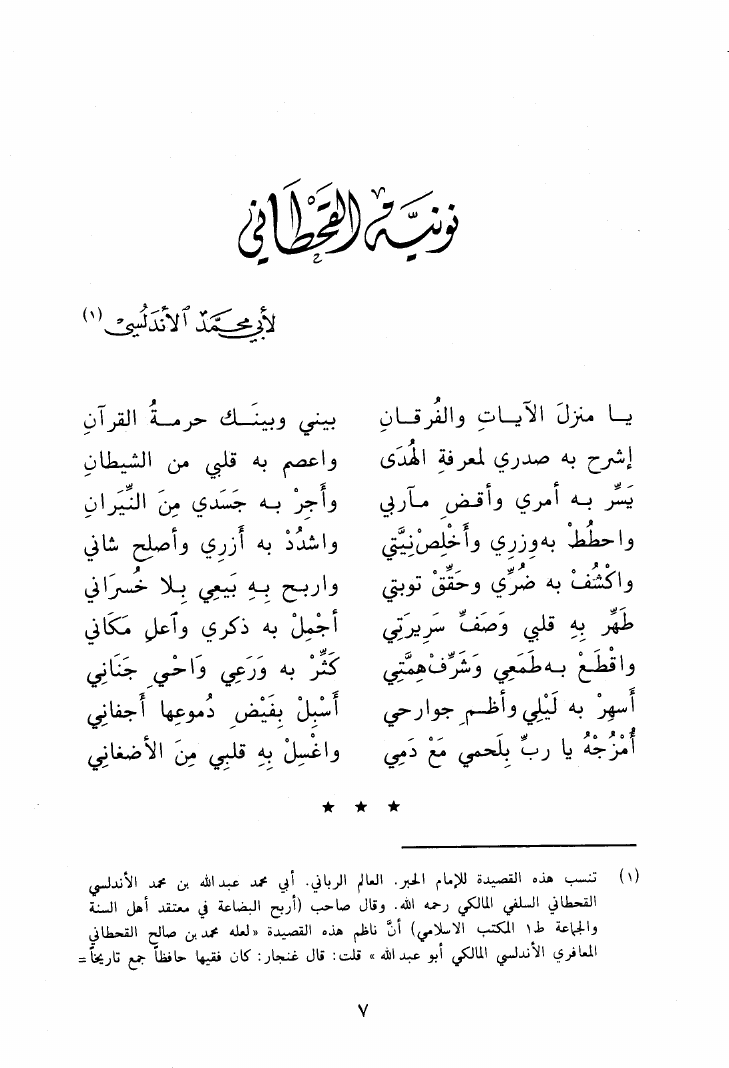 نونية القحطاني
لأبي محمد الأندلسي (١)
يا منزلَ الآياتِ والفُرقانِ بيني وبينَك حرمةُ القرآنِ
إشرح به صدري لمعرفةِ الهُدَى واعصم به قلبي من الشيطانِ
يَسِّر به أمري وأقضِ مآربي وأجِرْ به جَسَدي مِنَ النِّيَرانِ
واحطُطْ به وزري وأخْلِصْ نيَّتي واشدُدْ به أَزري وأصلح شاني
واكْشُفْ به ضُرِّي وحَقِّقْ توبتي واربح بِهِ بَيعي بِلا خُسراني
طَهِّر بِهِ قلبي وَصَفِّ سَرِيرَتي أجْمِلْ به ذكري وآعلِ مَكَاني
واقْطَعْ به طَمَعي وَشَرِّفْ همَّتي كَثِّرْ به وَرَعي وَاحْيِ جَنَاني
أَسهِرْ به لَيْلي وأظمِ جوارحي أَسْبِلْ بِفَيْضِ دُموعِها أجفاني
أُمْزُجْهُ يا ربِّ بِلَحمي مَعْ دَمِي واغْسِلْ بِهِ قلبِي مِنَ الأضغاني
★ ★ ★
(١) تنسب هذه القصيدة للإمام الحبر. العالم الرباني. أبي محمد عبدالله بن محمد الأندلسي
القحطاني السلفي المالكي رحمه الله. وقال صاحب (أربح البضاعة في معتقد أهل السنة
والجماعة ط١ المكتب الاسلامي) أنَّ ناظم هذه القصيدة «لعله محمد بن صالح القحطاني
المعافري الأندلسي المالكي أبو عبدالله» قلت: قال غنجار: كان فقيها حافظاً جمع تاريخاً =
٧